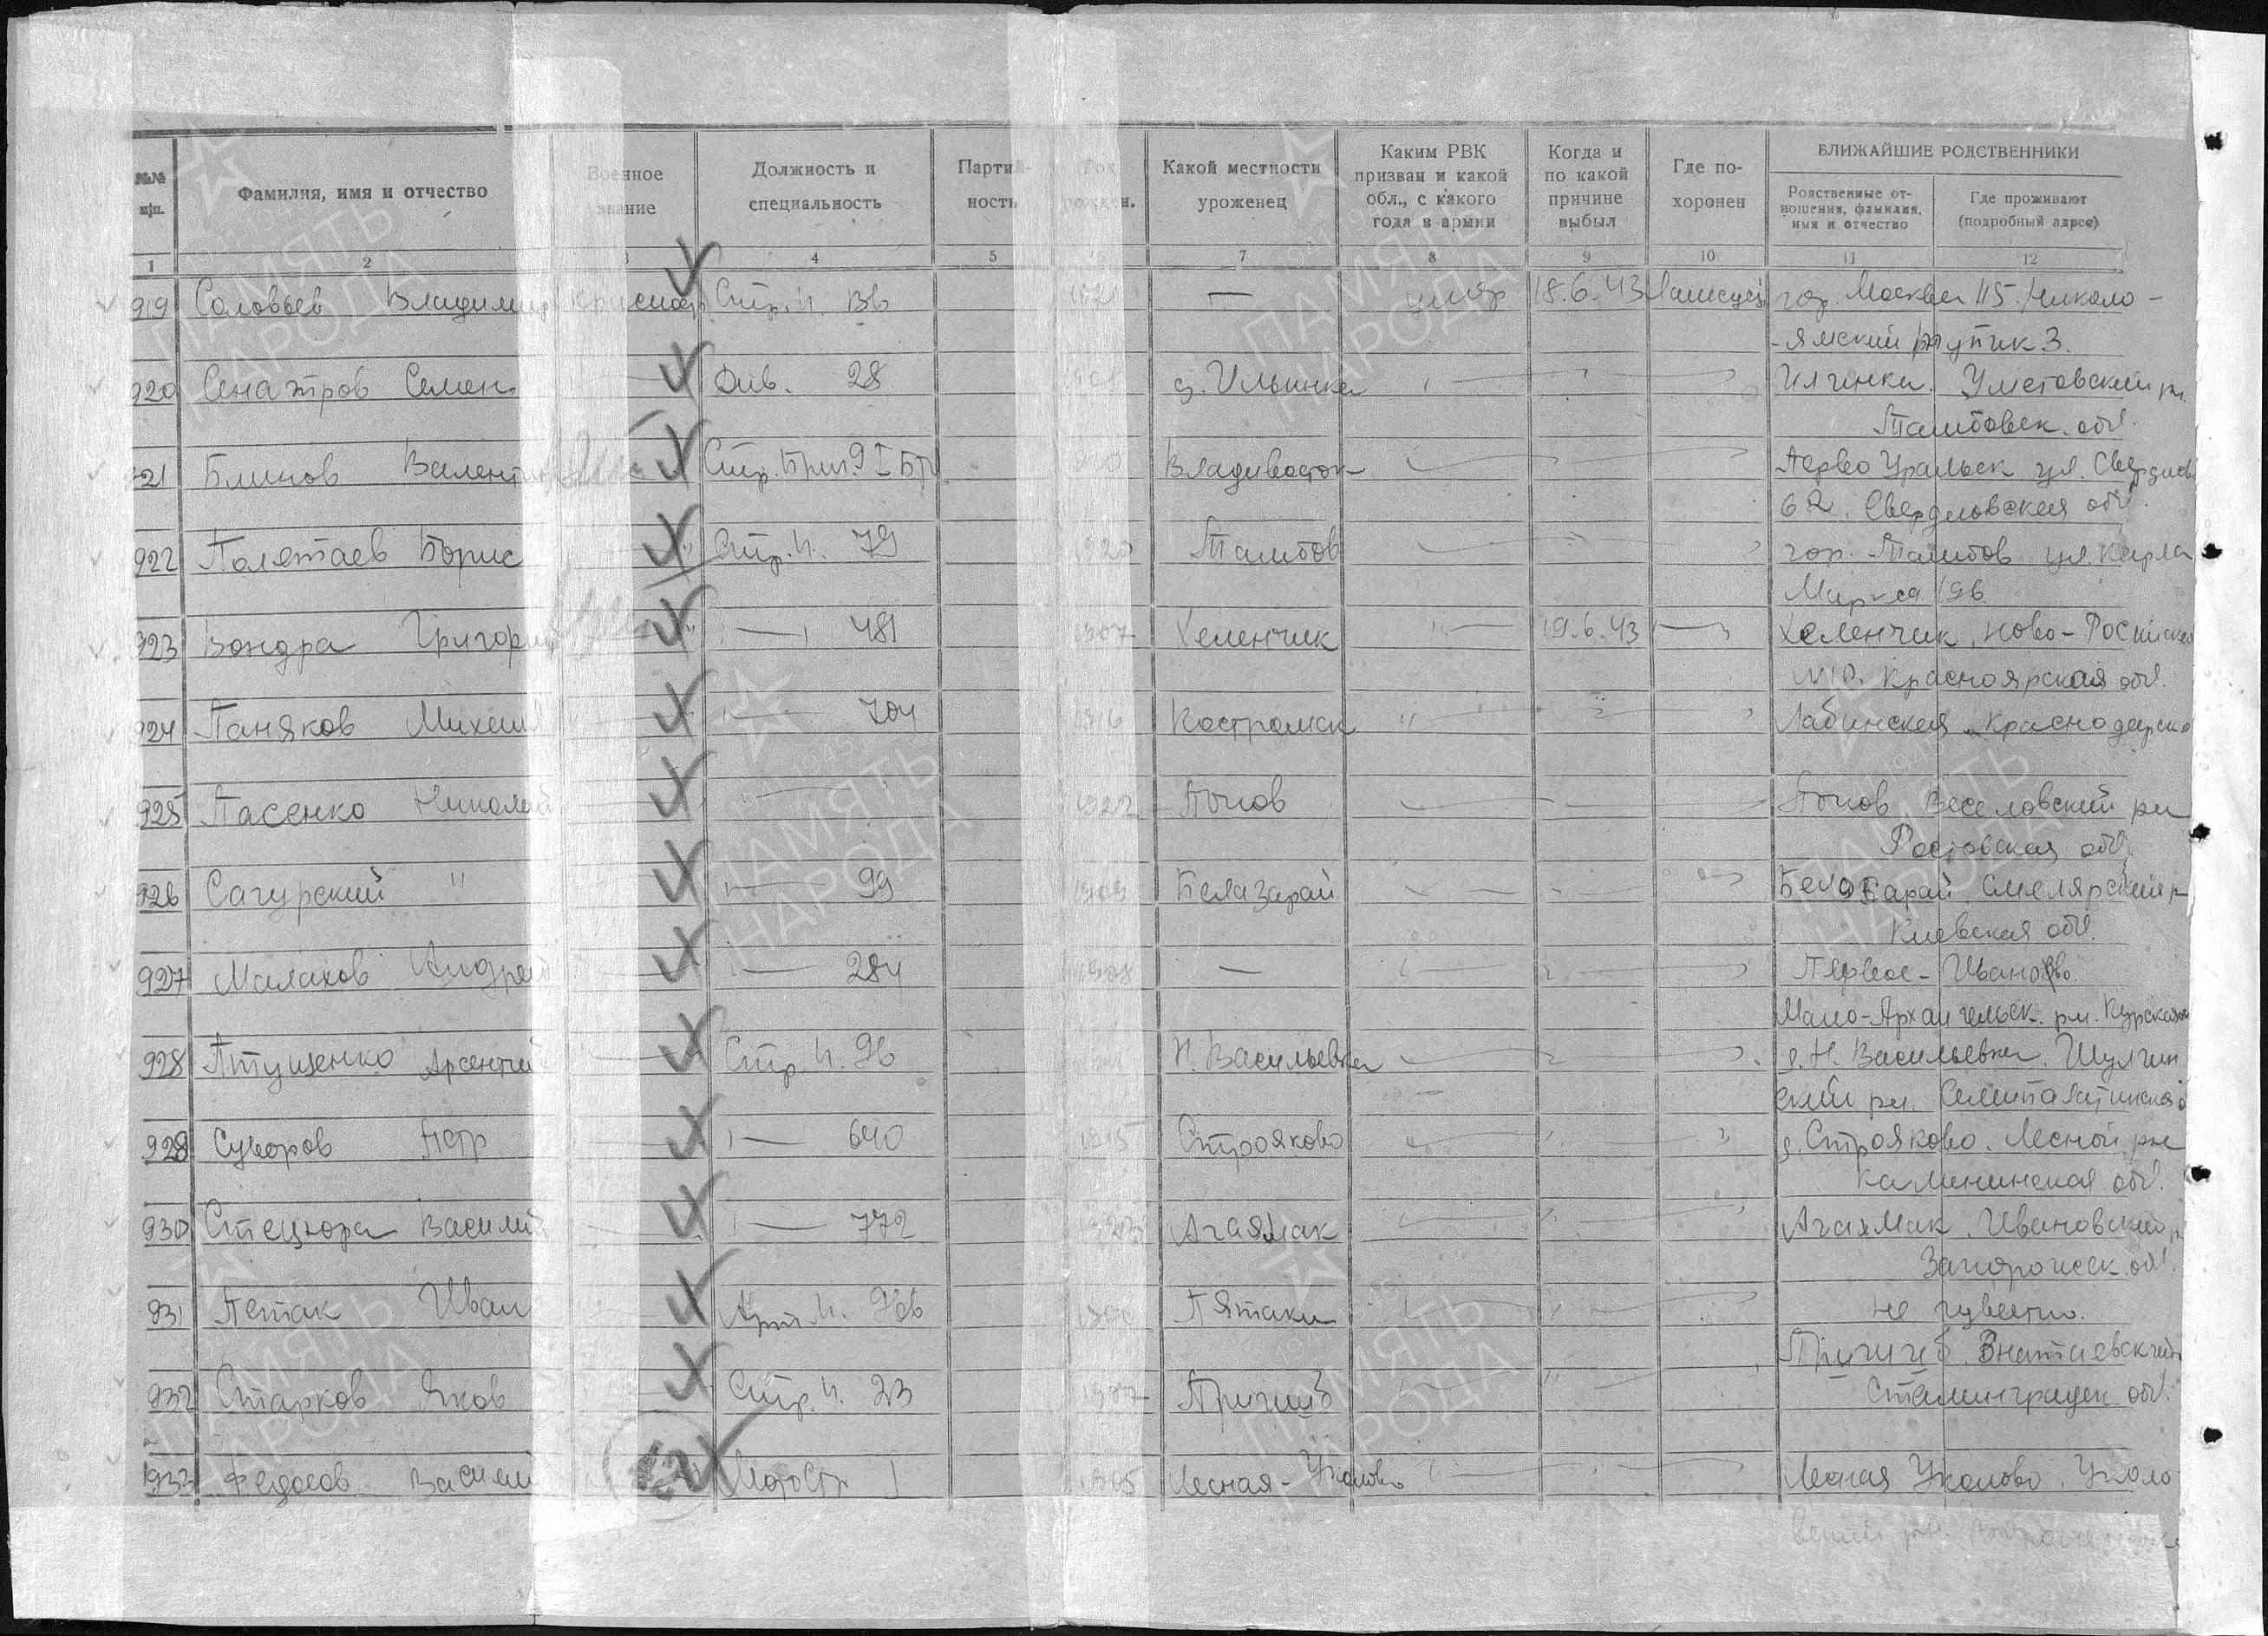 №№ п/п.
Фамилия, имя и отчество
Военное звание
Должность и специальность
Партийность
Год рожден.
Какой местности уроженец
Каким РВК призван и какой обл., с какого года в армии
Когда и по какой причине выбыл
Где похоронен
БЛИЖАЙШИЕ РОДСТВЕННИКИ
Родственные отношения, фамилия, имя и отчество
Где проживают (подробный адрес)
1 2 3 4 5 7 8 9 10 11 12
919 Соловьев Владимир Красноар Стр. п. — умер 18.6.43 гор. Москва 115. Николо-
-Ямский тупик 3.
920 Сенатров Семен Див. 28 д. Ильинка Уметовский рн.
Тамбовск. обл.
921 Блинов Валентин Стр. Бриг. Владивосток Перво Уральск ул. Свердлов
62. Свердловская обл.
922 Полетаев Борис " Стр. п. 79 Тамбов гор. Тамбов ул. Карла
Маркса 19в
923 Вондра Григорий " —"— 481 1907 Хеленчик " 19.6.43 Хеленчик, Ново-Росийская
№10. Красноярская обл.
924 Паняков Михаил —"— 704 1916 Костромск " Лабинская Краснодарско
925 Пасенко Николай 1922 Попов Попов Веселовский рн
Ростовская обл.
926 Сагурский " —"— 99 1909 Белазарай Смелярский р
Киевская обл.
927 Малахов Андрей —"— 284 1908 — Первое-Иваново.
Мало-Архангельск. рн. Курская
928 Птущенко Арсентий Стр. п. 96 Н. Васильевка с. Н. Васильевка. Шулгин
ский рн. Семипалатинская
929 Суворов Петр —"— 640 1915 Строяково д. Строяково. Лесной рн
Калининская обл.
930 Стецюра Василий —"— 772 Агаямак Агаямак. Ивановский р
Запорожск. обл.
931 Петак Иван Арт. п. Пятаки не известно.
932 Старков Яков Стр. п. 23 Пришиб Пришиб.
Сталинградск обл.
933 Федосов Василий Мотостр 1 1905 Лесная-Уколово Лесная Уколово. Уколо
вский рн.
ПАМЯТЬ НАРОДА
ПАМЯТЬ НАРОДА
ПАМЯТЬ НАРОДА
ПАМЯТЬ НАРОДА
ПАМЯТЬ НАРОДА
ПАМЯТЬ НАРОДА